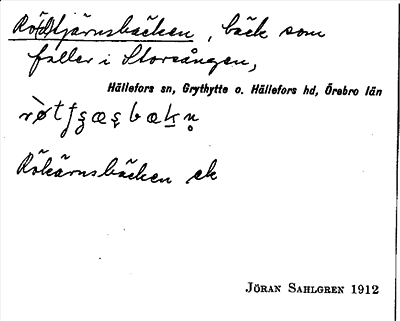 Rö(d)tjärnsbäcken, bäck som
faller i Storsången,
Hällefors sn, Grythytte o. Hällefors hd, Örebro län
Rökärnsbäcken ek
JÖRAN SAHLGREN 1912